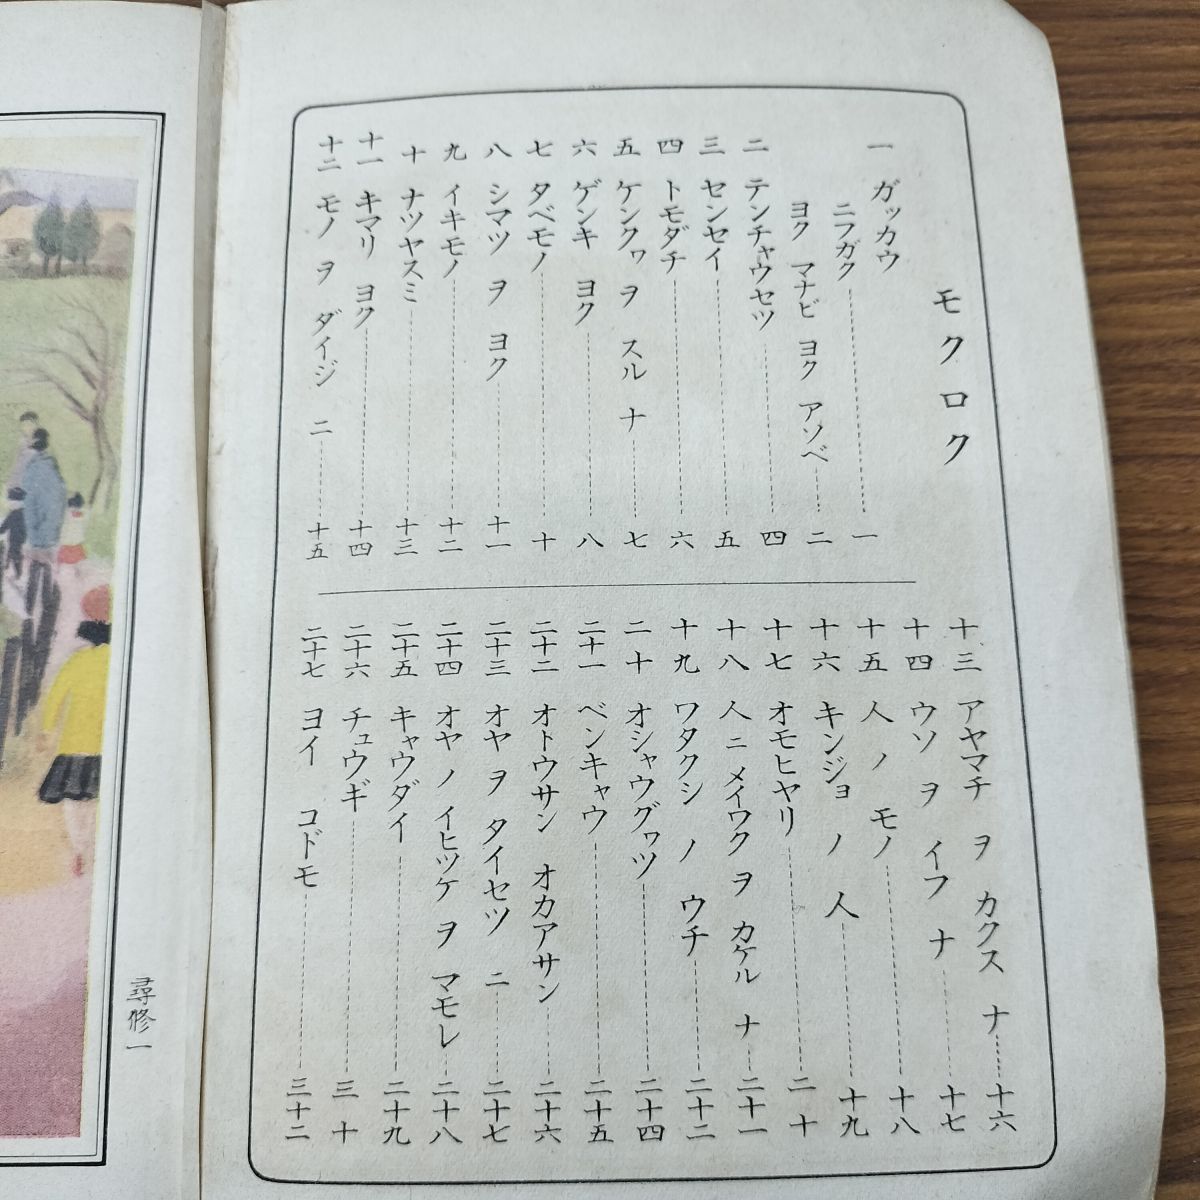 モクロク
一 ガッカウ
ニフガク 一
ヨク マナビ ヨク アソベ 二
二 テンチャウセツ 四
三 センセイ 五
四 トモダチ 六
五 ケンクヮ ヲ スル ナ 七
六 ゲンキ ヨク 八
七 タベモノ 十
八 シマツ ヲ ヨク 十一
九 イキモノ 十二
十 ナツヤスミ 十三
十一 キマリ ヨク 十四
十二 モノ ヲ ダイジ ニ 十五
十三 アヤマチ ヲ カクス ナ 十六
十四 ウソ ヲ イフ ナ 十七
十五 人 ノ モノ 十八
十六 キンジョ ノ 人 十九
十七 オモヒヤリ 二十
十八 人 ニ メイワク ヲ カケル ナ 二十一
十九 ワタクシ ノ ウチ 二十二
二十 オシャウグヮツ 二十四
二十一 ベンキャウ 二十五
二十二 オトウサン オカアサン 二十六
二十三 オヤ ヲ タイセツ ニ 二十七
二十四 オヤ ノ イヒツケ ヲ マモレ 二十八
二十五 キャウダイ 二十九
二十六 チュウギ 三十
二十七 ヨイ コドモ 三十二
尋修一